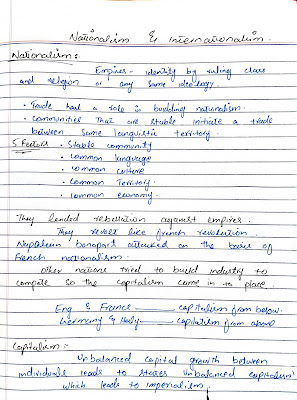 Nationalism & Internationalism.
Nationalism:
Empires - identity by ruling class
and religion or any same ideology.
• Trade had a role in building nationalism.
• Communities that are stable initiate a trade
between same linguistic territory.
5 Factors • Stable community
• common language
• common culture
• common Territory.
• common economy.
They landed rebellation against empires.
They revolt like french revolution.
Napoleun bonapart attacked on the bases of
French nationalism.
Other nations tried to build industry to
compete so the capitalism came in to place.
Eng & France ——— capitalism from below.
Germany & Italy ——— capitalism from above
Capitalism:-
Unbalanced capital growth between
individuals leads to states unbalanced capitalism
which leads to imperialism.